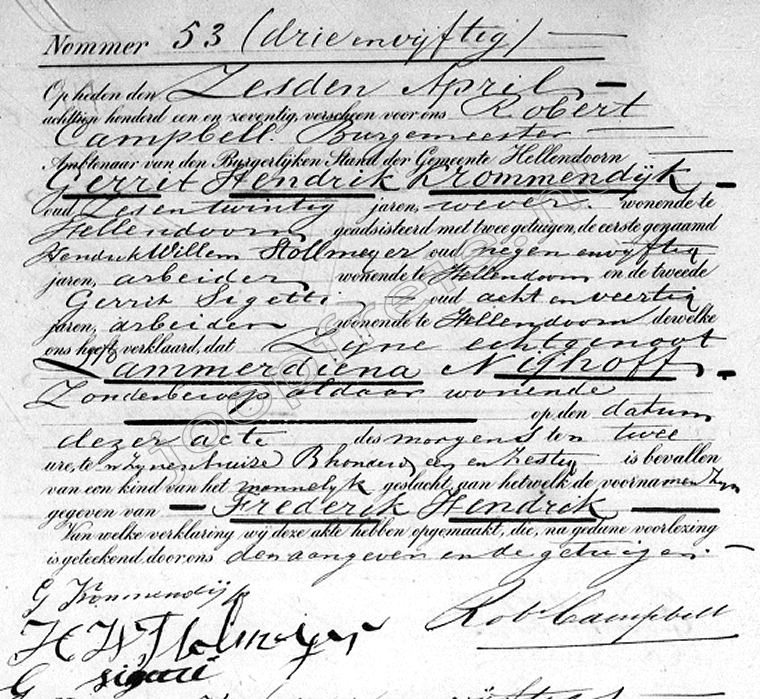 Nommer 53 (drie en vijftig)
Op heden den Zesden April
achttien honderd een en zeventig, verscheen voor ons Robert
Campbell. Burgemeester
Ambtenaar van den Burgerlijken Stand der Gemeente Hellendoorn
Gerrit Hendrik Krommendijk
oud Zes en twintig jaren, wever. wonende te
Hellendoorn geadsisteerd met twee getuigen, de eerste genaamd
Hendrik Willem Stollmeyer oud negen en vyftig
jaren, arbeider wonende te Hellendoorn en de tweede
Gerrit Sigetti oud acht en veertig
jaren, arbeider wonende te Hellendoorn dewelke
ons heeft verklaard, dat Zyne echtgenoot
Lammerdiena Nijhoff
Zonder beroep aldaar wonende
op den datum
dezer acte des morgens ten twee
ure, te zynen huize B honderd een en Zestig is bevallen
van een kind van het mannelyk geslacht, aan hetwelk de voornamen Zyn
gegeven van Frederik Hendrik
Van welke verklaring wij deze akte hebben opgemaakt, die, na gedane voorlezing
is geteekend, door ons den aangever en de getuigen.
G Krommendijk
Rob Campbell
H W Stolmeijer
G